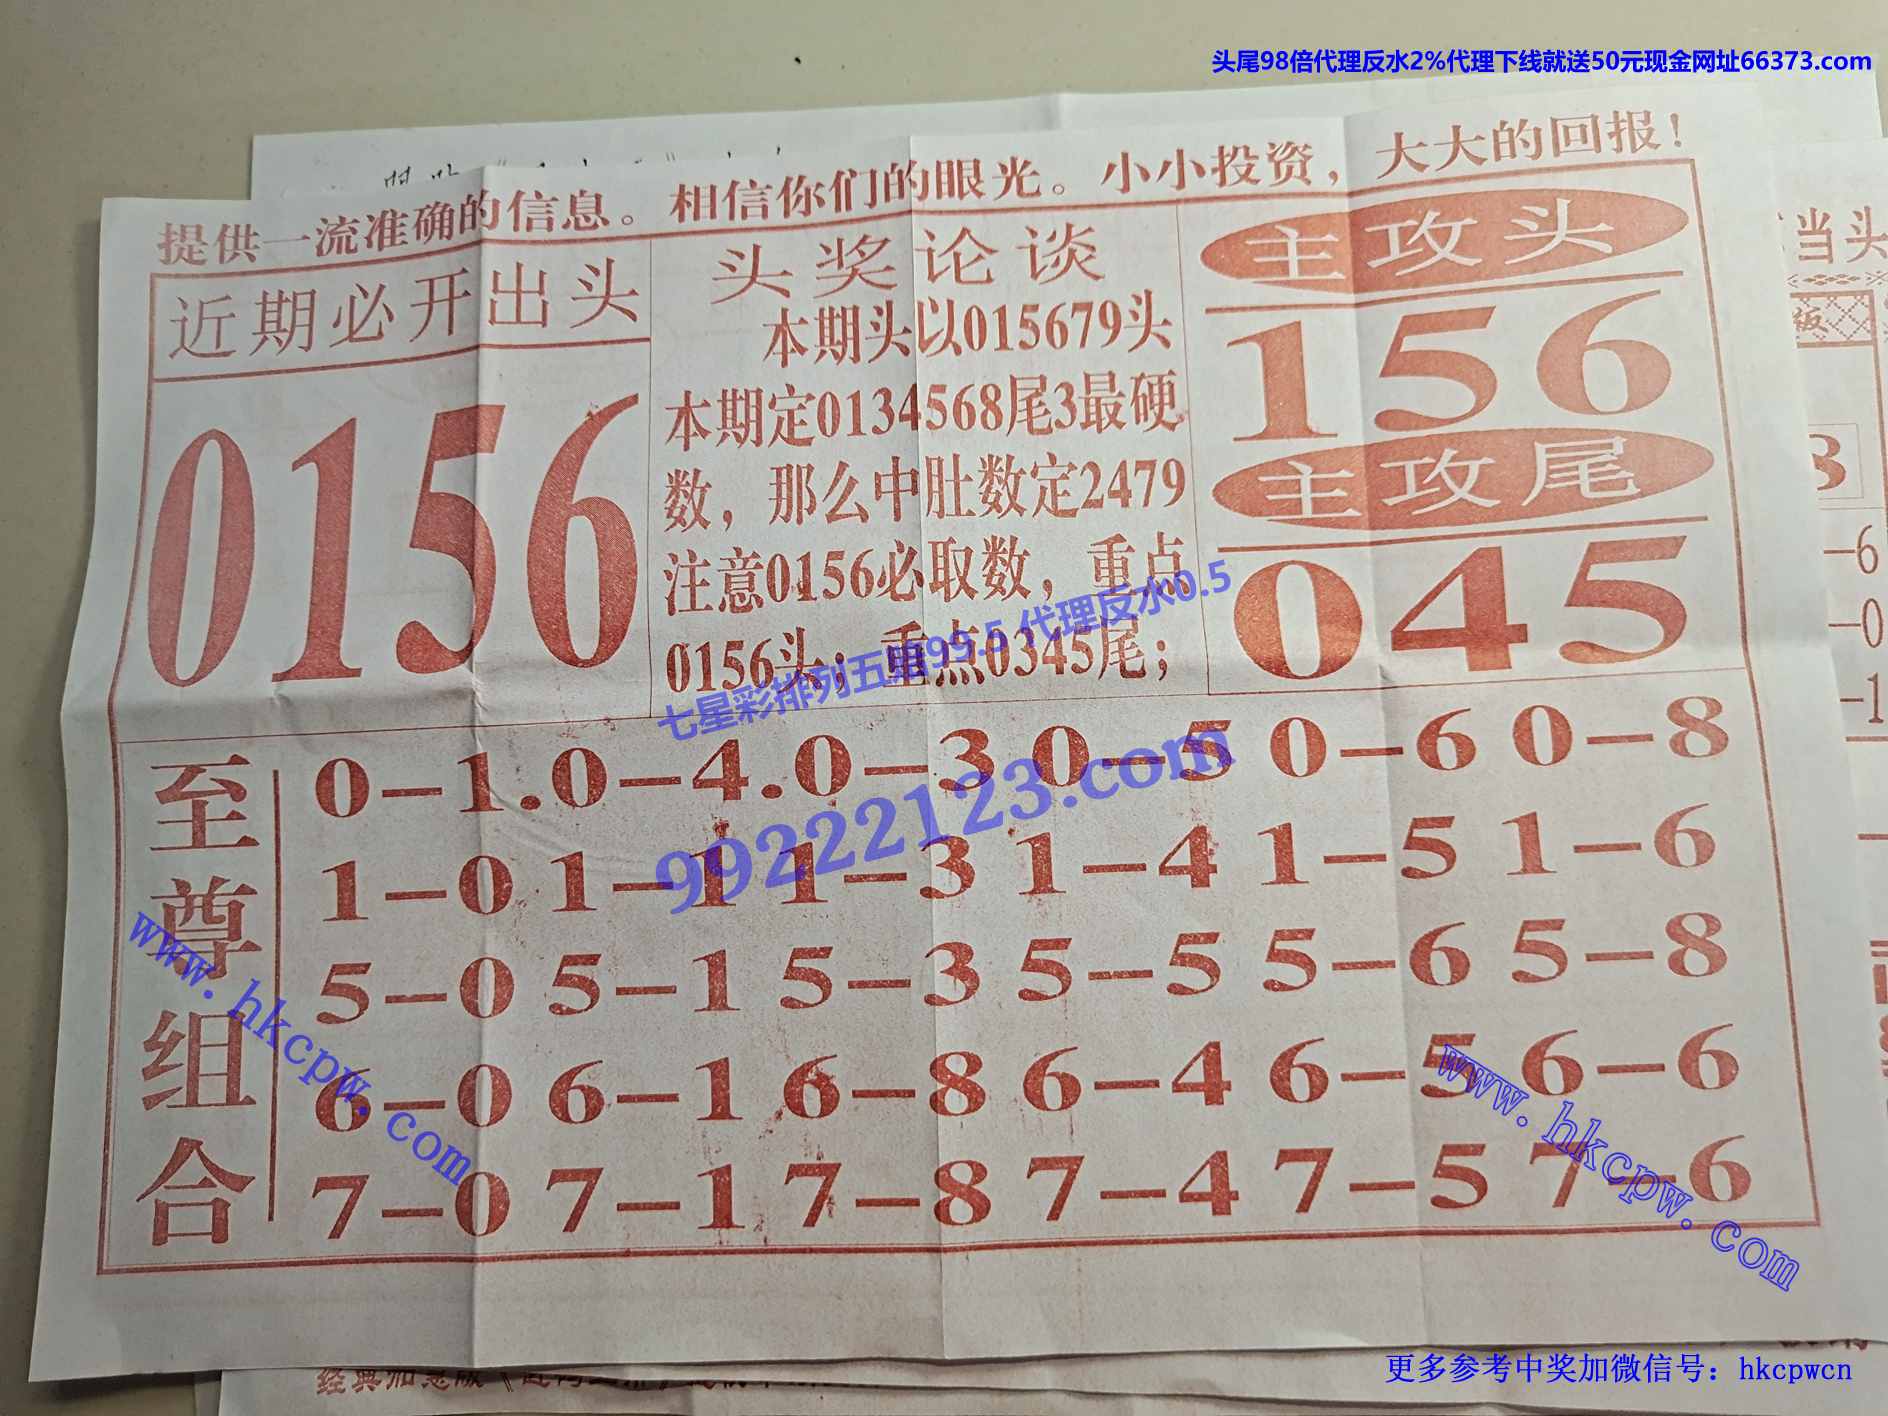 头尾98倍代理反水2%代理下线就送50元现金网址66373.com
提供一流准确的信息。相信你们的眼光。小小投资，大大的回报！
近期必开出头
0156
头奖论谈
本期头以015679头
本期定0134568尾3最硬
数，那么中肚数定2479
注意0156必取数，重点
0156头；重点0345尾；
主攻头
156
主攻尾
045
七星彩排列五 99.5 代理反水0.5
99222123.com
至尊组合
0-1.0-4.0-3 0-5 0-6 0-8
1-0 1-1 1-3 1-4 1-5 1-6
5-0 5-1 5-3 5-5 5-6 5-8
6-0 6-1 6-8 6-4 6-5 6-6
7-0 7-1 7-8 7-4 7-5 7-6
www.hkcpw.com
www.hkcpw.com
当头
版
3
-6
-0
-1
更多参考中奖加微信号：hkcpwcn